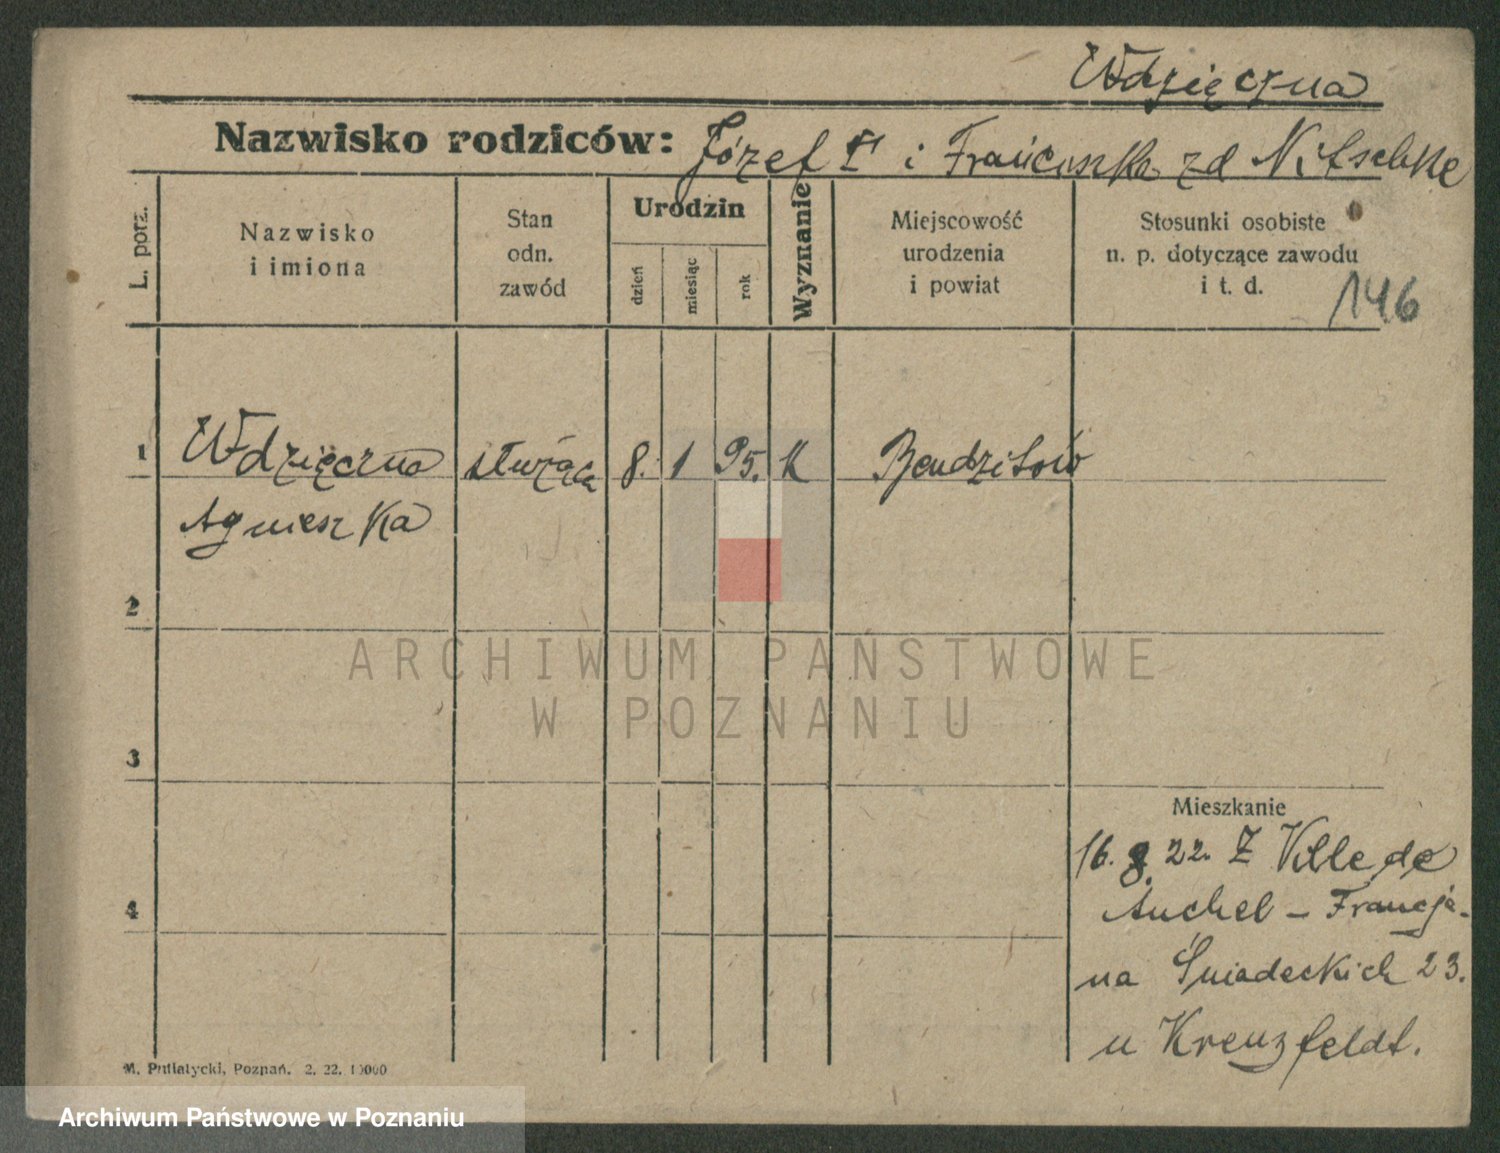 Wdzięczna
Nazwisko rodziców: Józef † i Franciszka zd Nitschke
L. porz.
Nazwisko
i imiona
Stan
odn.
zawód
Urodzin
dzień
miesiąc
rok
Wyznanie
Miejscowość
urodzenia
i powiat
Stosunki osobiste
n. p. dotyczące zawodu
i t. d.
146
1 Wdzięczna służąca 8. 1 95. K Bendzitów
Agnieszka
2
3
4
Mieszkanie
16. 8. 22. Z Ville de
Auchel – Francja-
na Śniadeckich 23.
u Kreuzfeldt.
M. Putiatycki, Poznań. 2. 22. 10000
ARCHIWUM PAŃSTWOWE
W POZNANIU
Archiwum Państwowe w Poznaniu